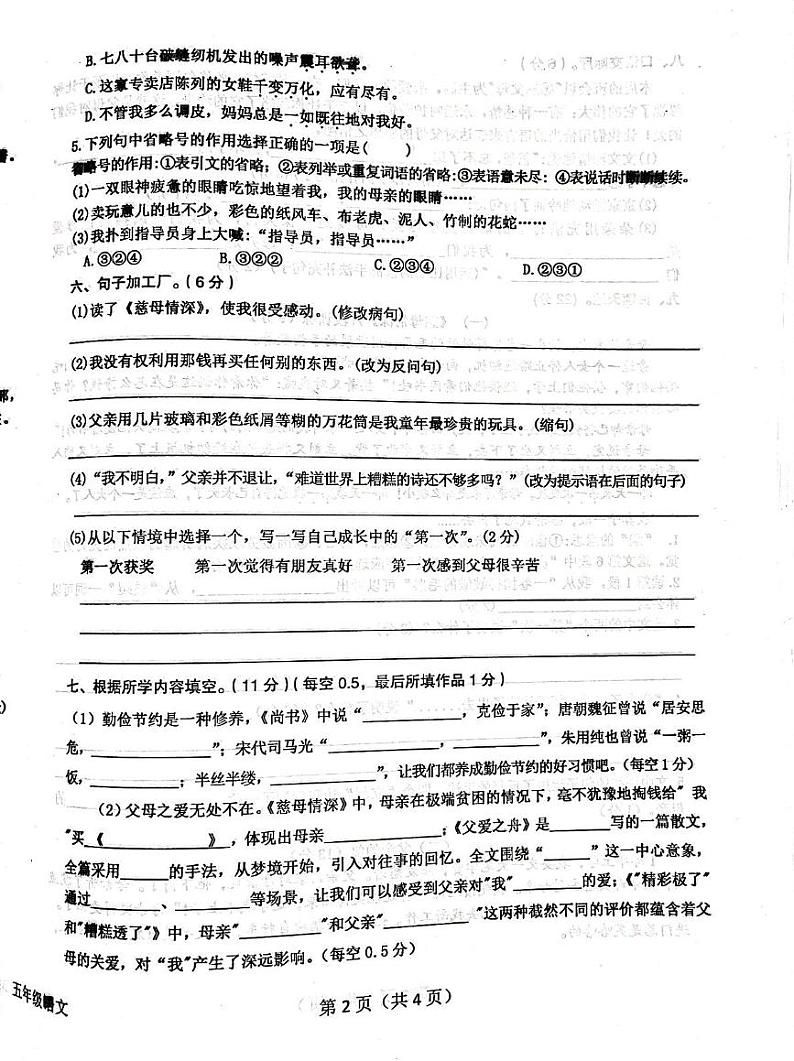 B.七八十台破缝纫机发出的噪声震耳欲聋。
C.这家专卖店陈列的女鞋千变万化，应有尽有。
D.不管我多么调皮，妈妈总是一如既往地对我好。
5.下列句中省略号的作用选择正确的一项是(　　)
省略号的作用:①表引文的省略；②表列举或重复词语的省略:③表语意未尽：④表说话时断断续续。
(1)一双眼神疲惫的眼睛吃惊地望着我，我的母亲的眼睛……
(2)卖玩意儿的也不少，彩色的纸风车、布老虎、泥人、竹制的花蛇……
(3)我扑到指导员身上大喊：“指导员，指导员……”
A.③②④　B.③②①　C.②③④　D.②③①
六、句子加工厂。(6分)
(1)读了《慈母情深》，使我很受感动。(修改病句)
(2)我没有权利用那钱再买任何别的东西。(改为反问句)
(3)父亲用几片玻璃和彩色纸屑等糊的万花筒是我童年最珍贵的玩具。(缩句)
(4)“我不明白，”父亲并不退让，“难道世界上糟糕的诗还不够多吗？”(改为提示语在后面的句子)
(5)从以下情境中选择一个，写一写自己成长中的“第一次”。(2分)
第一次获奖　第一次觉得有朋友真好　第一次感到父母很辛苦
七、根据所学内容填空。(11分)(每空0.5，最后所填作品1分)
(1)勤俭节约是一种修养，《尚书》中说“____________，克俭于家”；唐朝魏征曾说“居安思
危，____________”；宋代司马光“__________，__________”，朱用纯也曾说“一粥一
饭，____________；半丝半缕，____________”，让我们都养成勤俭节约的好习惯吧。(每空1分)
(2)父母之爱无处不在。《慈母情深》中，母亲在极端贫困的情况下，毫不犹豫地掏钱给"我
"买《____________》，体现出母亲____________；《父爱之舟》是________写的一篇散文，
全篇采用______的手法，从梦境开始，引入对往事的回忆。全文围绕“______”这一中心意象，
通过________、________等场景，让我们可以感受到父亲对"我"________的爱；《"精彩极了"
和"糟糕透了"》中，母亲"__________"和父亲"__________"这两种截然不同的评价都蕴含着父
母的关爱，对“我"产生了深远影响。(每空0.5分)
五年级语文
第2页（共4页）